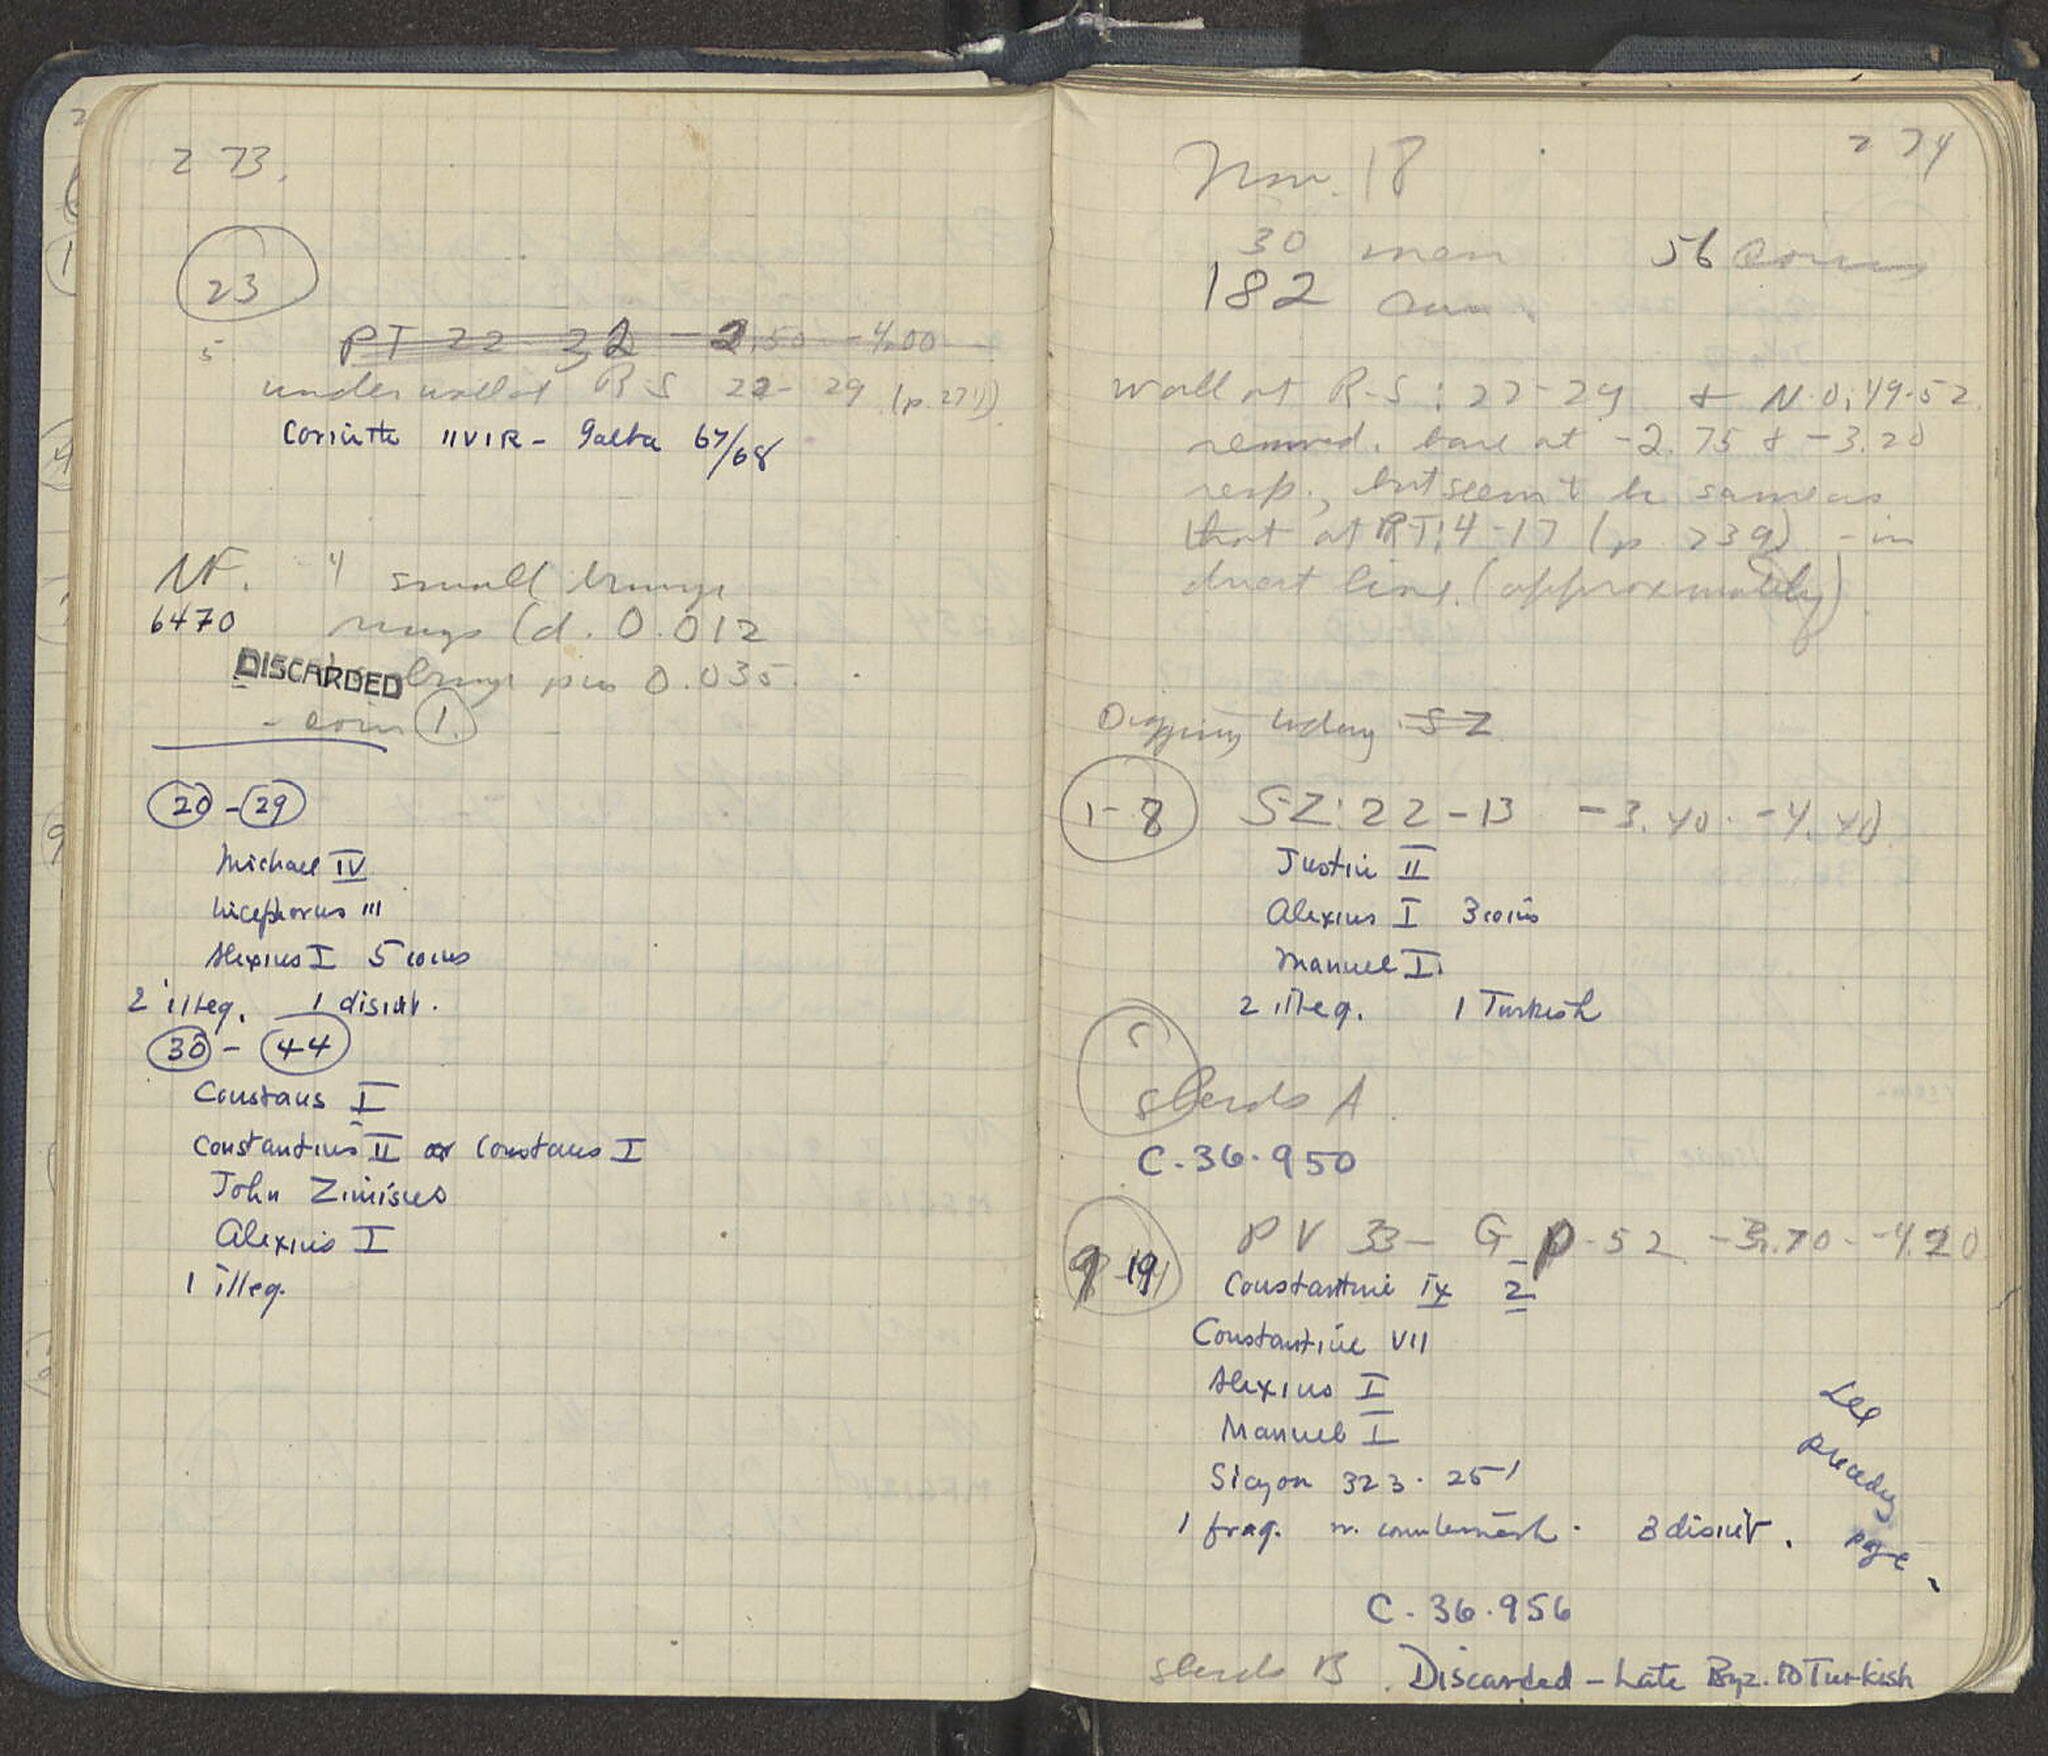 273.
23
5
PT 22 32 - 2.50 - 4.00
under wall at RS 22-29 (p. 274)
Corinth IIVIR - Galba 67/68
NF. 4 small bronze
6470 rings (d. 0.012
DISCARDED bronze pin 0.035.
- coin 1.
20 - 29
Michael IV
Nicephorus III
Alexius I 5 coins
2 illeg. 1 disint.
30 - 44
Constans I
Constantius II or Constans I
John Zimisces
Alexius I
1 illeg.
274
Nov. 18
30 men 56 coins
182 cars
Wall at R-S: 22-29 & N-O: 49-52
removed. base at -2.75 & -3.20
resp., but seem to be same as
that at RT: 4-17 (p 239) - in
direct line. (approximately)
Digging today SZ
1-8 SZ: 22-13 -3.40. -4.40
Justin II
Alexius I 3 coins
Manuel I
2 illeg. 1 Turkish
sherds A
C-36-950
9-19 PV 33- G P-52 -3.70 - -4.20
Constantine IX 2
Constantine VII
Alexius I
Manuel I
Sicyon 323-251
1 frag. w. countermark. 3 disint.
See
preceding
page.
C-36-956
sherds B. Discarded - Late Byz. to Turkish